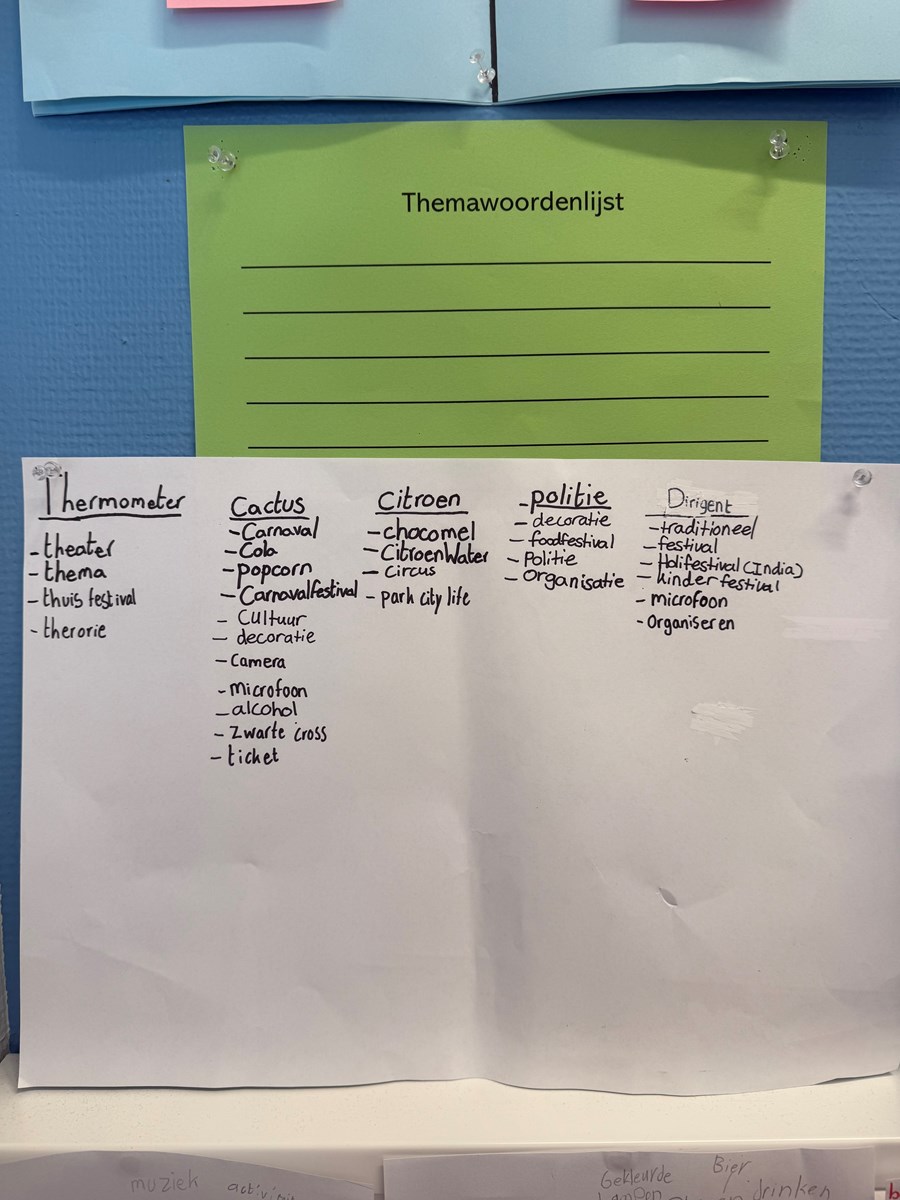 Themawoordenlijst
Thermometer
- theater
- thema
- thuis festival
- therorie
Cactus
- Carnaval
- Cola
- popcorn
- Carnavalfestival
- Cultuur
- decoratie
- Camera
- microfoon
- alcohol
- Zwarte cross
- ticket
Citroen
- chocomel
- CitroenWater
- Circus
- park city life
- politie
- decoratie
- foodfestival
- Politie
- Organisatie
Dirigent
- traditioneel
- festival
- Holifestival (India)
- kinder festival
- microfoon
- Organiseren
muziek
Gekleurde
Bier
drinken